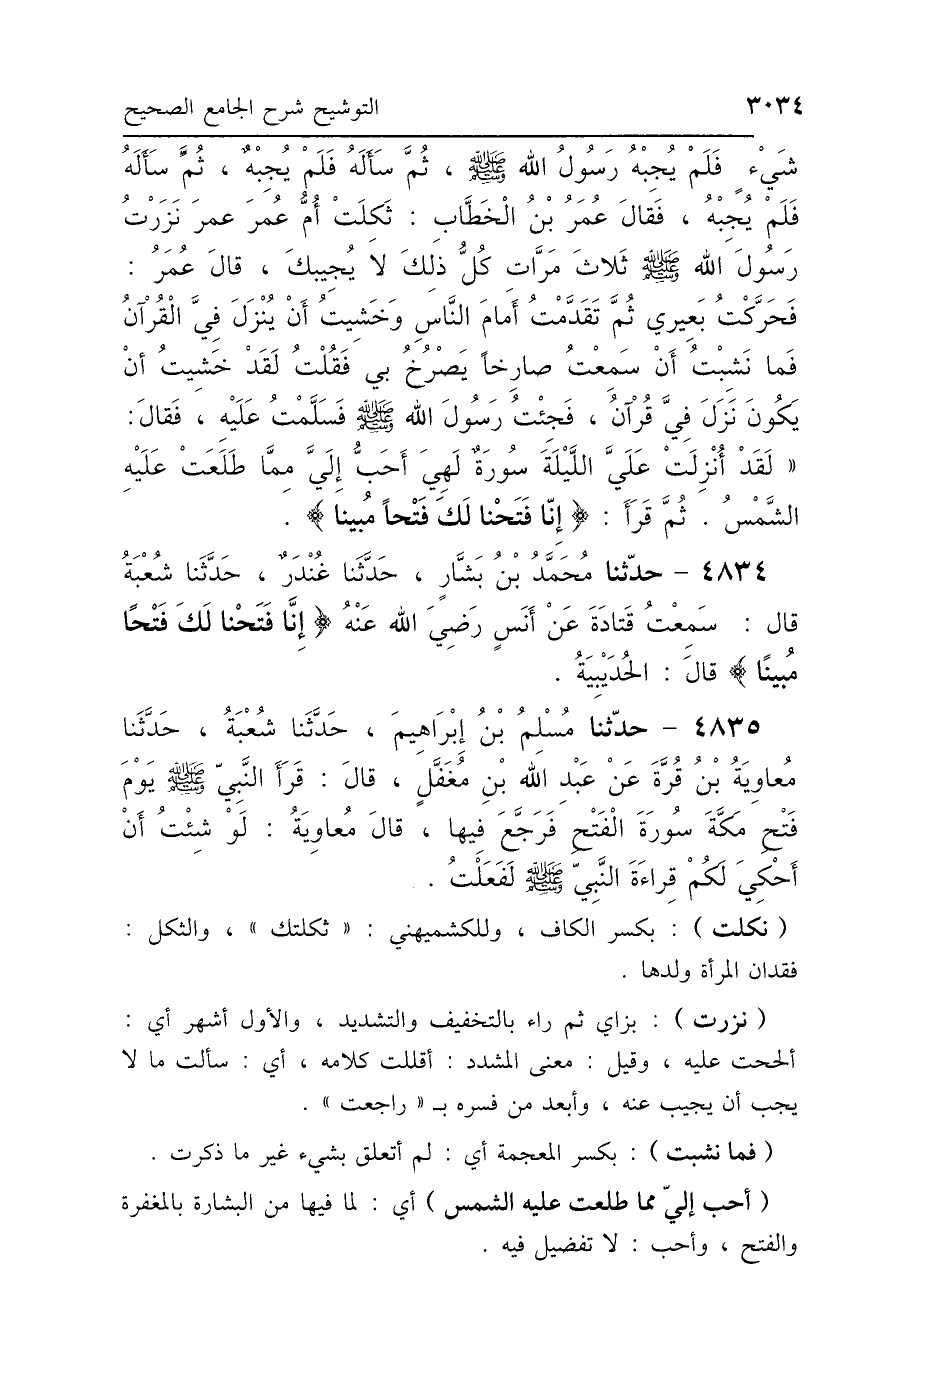 ٣٠٣٤ التوشيح شرح الجامع الصحيح
شَيْءٍ فَلَمْ يُجِبْهُ رَسُولُ الله ﷺ ، ثُمَّ سَأَلَهُ فَلَمْ يُجِبْهُ ، ثُمَّ سَأَلَهُ
فَلَمْ يُجِبْهُ ، فَقالَ عُمَرُ بْنُ الْخَطَّابِ : ثَكِلَتْ أُمُّ عُمَرَ عمرَ نَزَرْتَ
رَسُولَ الله ﷺ ثَلاثَ مَرَّاتٍ كُلُّ ذلِكَ لا يُجِيبكَ ، قالَ عُمَرُ :
فَحَرَّكْتُ بَعِيري ثُمَّ تَقَدَّمْتُ أَمامَ النَّاسِ وَخَشِيتُ أَنْ يُنْزَلَ فيَّ الْقُرْآنُ
فَما نَشِبْتُ أَنْ سَمِعْتُ صارِخاً يَصْرُخُ بي فَقُلْتُ لَقَدْ خَشِيتُ أنْ
يَكُونَ نَزَلَ فيَّ قُرْآنُ ، فَجِئْتُ رَسُولَ الله ﷺ فَسَلَّمْتُ عَلَيْهِ ، فَقالَ:
« لَقَدْ أُنْزِلَتْ عَلَيَّ اللَّيْلَةَ سُورَةٌ لَهِيَ أَحَبُّ إلَيَّ مِمَّا طَلَعَتْ عَلَيْهِ
الشَّمْسُ . ثُمَّ قَرَأَ : ﴿ إنّا فَتَحْنا لَكَ فَتْحاً مُبِينا ﴾ .
٤٨٣٤ – حدّثنا مُحَمَّدُ بْنُ بَشَّارٍ ، حَدَّثَنا غُنْدَرٌ ، حَدَّثَنا شُعْبَةُ
قال : سَمِعْتُ قَتادَةَ عَنْ أنَسٍ رَضِيَ الله عَنْهُ ﴿ إنَّا فَتَحْنا لَكَ فَتْحًا
مُبِينًا ﴾ قالَ : الحُدَيْبِيَةُ .
٤٨٣٥ – حدّثنا مُسْلِمُ بْنُ إبْرَاهِيمَ ، حَدَّثَنا شُعْبَةُ ، حَدَّثَنا
مُعاوِيَةُ بْنُ قُرَّةَ عَنْ عَبْدِ الله بْنِ مُغَفَّلٍ ، قالَ : قَرَأَ النَّبيّ ﷺ يَوْمَ
فَتْحِ مَكَّةَ سُورَةَ الْفَتْحِ فَرَجَّعَ فِيها ، قالَ مُعاوِيَةُ : لَوْ شِئْتُ أَنْ
أَحْكِيَ لَكُمْ قِراءَةَ النَّبيّ ﷺ لَفَعَلْتُ .
( نكلت ) : بكسر الكاف ، وللكشميهني : « ثكلتك » ، والثكل :
فقدان المرأة ولدها .
( نزرت ) : بزاي ثم راء بالتخفيف والتشديد ، والأول أشهر أي :
ألححت عليه ، وقيل : معنى المشدد : أقللت كلامه ، أي : سألت ما لا
يجب أن يجيب عنه ، وأبعد من فسره بـ « راجعت » .
( فما نشبت ) : بكسر المعجمة أي : لم أتعلق بشيء غير ما ذكرت .
( أحب إليّ مما طلعت عليه الشمس ) أي : لما فيها من البشارة بالمغفرة
والفتح ، وأحب : لا تفضيل فيه .